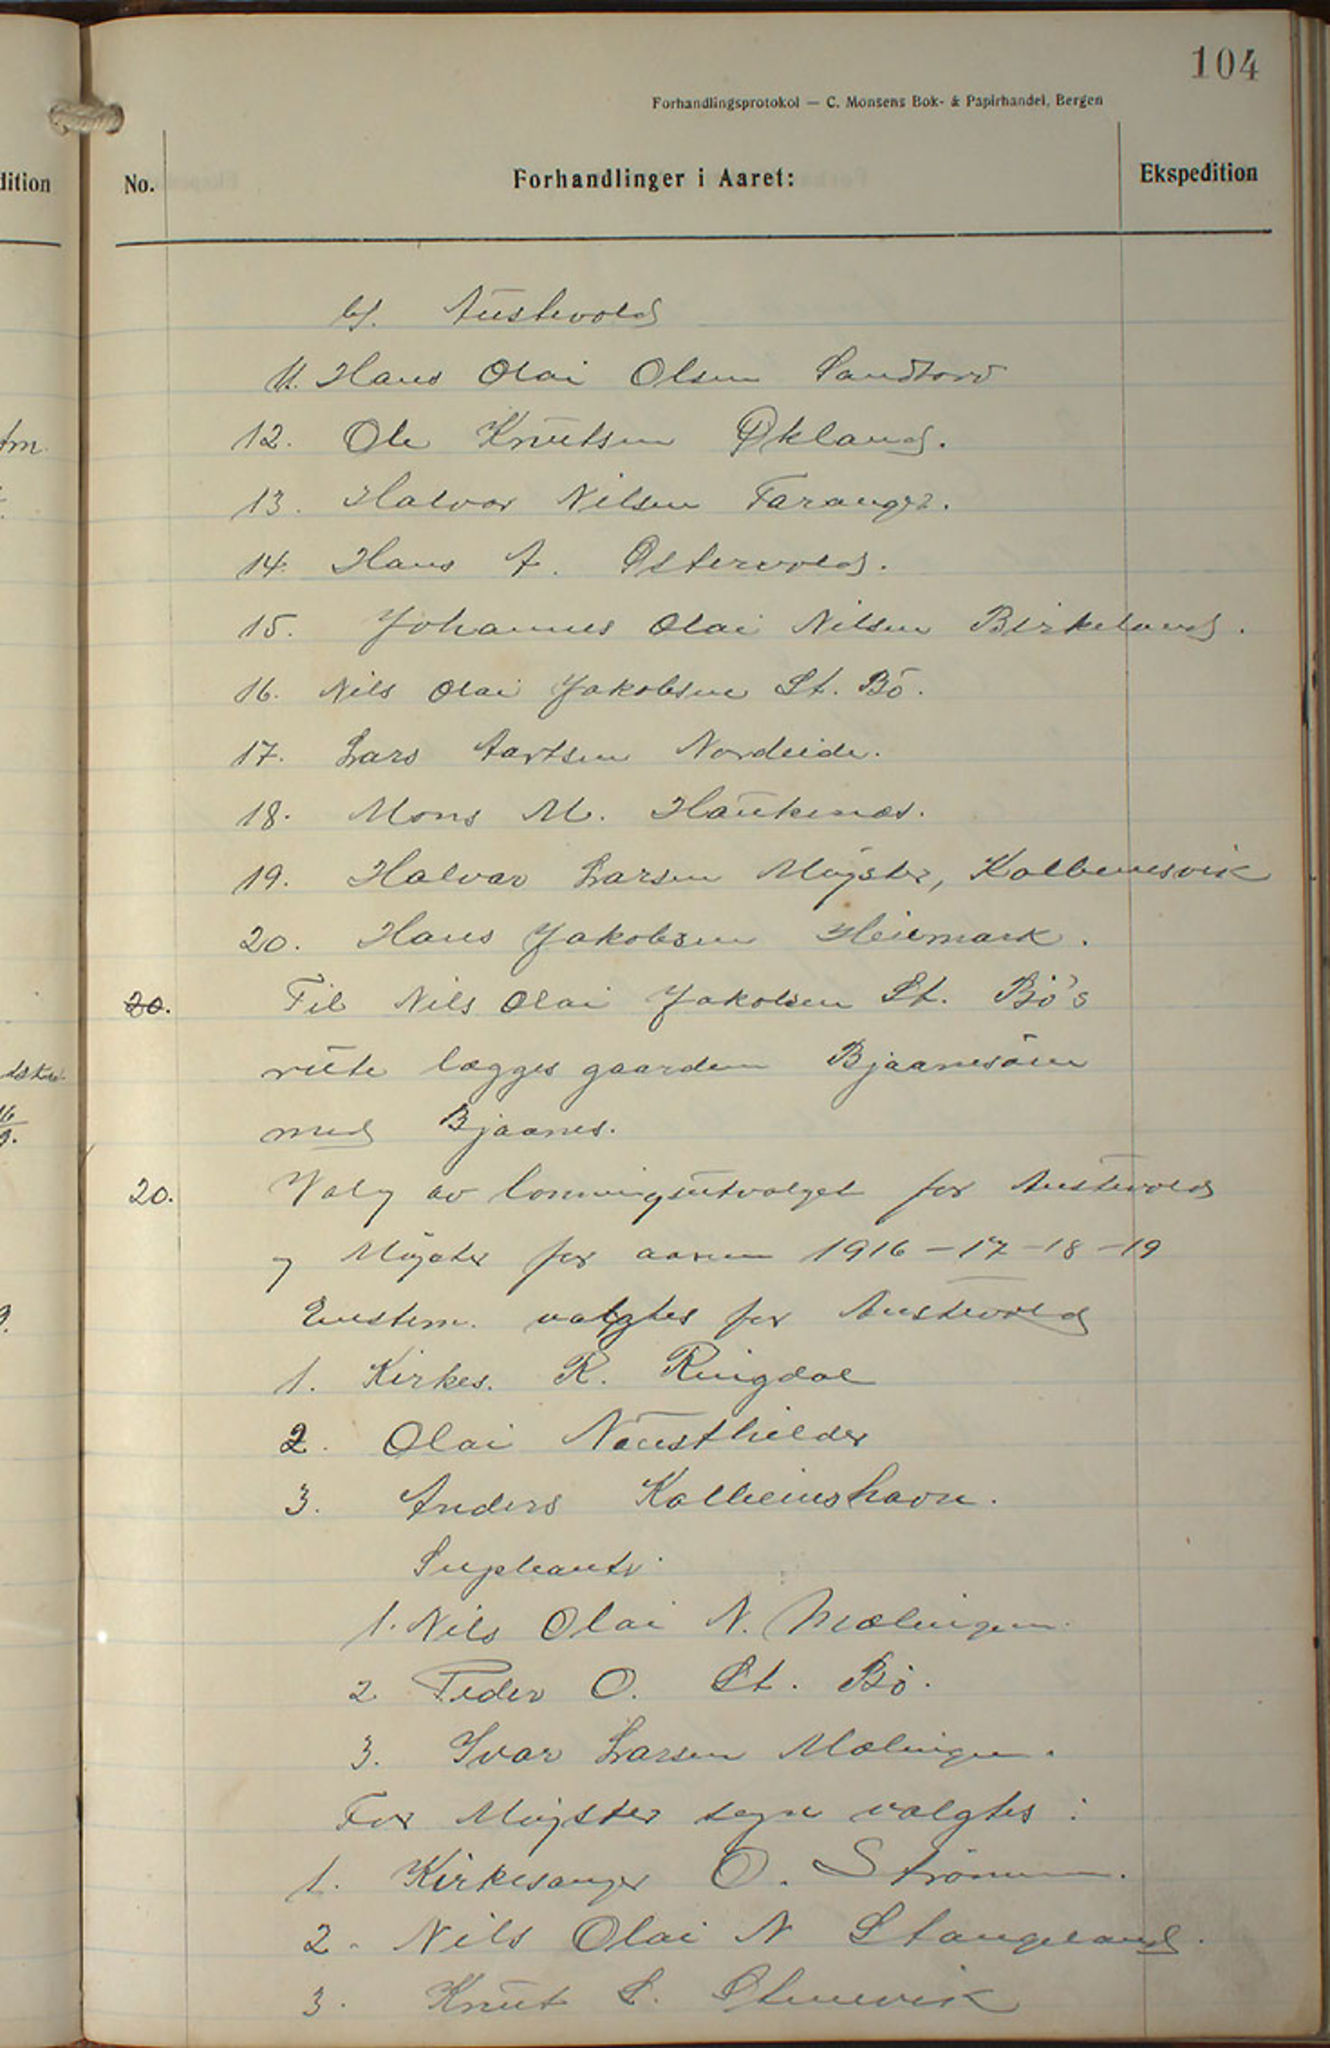 104
Forhandlingsprotokol — C. Monsens Bok- & Papirhandel, Bergen
dition
No.
Forhandlinger i Aaret:
Ekspedition
b/. Austevold
11. Hans Olai Olsen Sandtorv
12. Ole Knutsen Økland.
13. Halvor Nilsen Taranger.
14. Hans A. Østervold.
15. Johannes Olai Nilsen Birkeland.
16. Nils Olai Jakobsen St. Bö.
17. Lars Aartsen Nordeide.
18. Mons M. Haukenæs.
19. Halvar Larsen Møgster, Kolbensvik
20. Hans Jakobsen Heimark.
20. Til Nils Olai Jakobsen St. Bö's
rute lægges gaarden Bjaanesöen
med Bjaanes.
20. Valg av lonningsutvalget for Austevold
og Møgster for aaren 1916-17-18-19
Enstem. valgtes for Austevold
1. Kirkes. R. Ringdal
2. Olai Nausthelder
3. Anders Kolbeinshavn.
Supleanter
1. Nils Olai N. Mælingen.
2 Peder O. St. Bö.
3. Ivar Larsen Mælingen.
For Møgster sogn valgtes:
1. Kirkesanger O. Strömmen.
2. Nils Olai N Stangeland.
3. Knut L. Stenevik